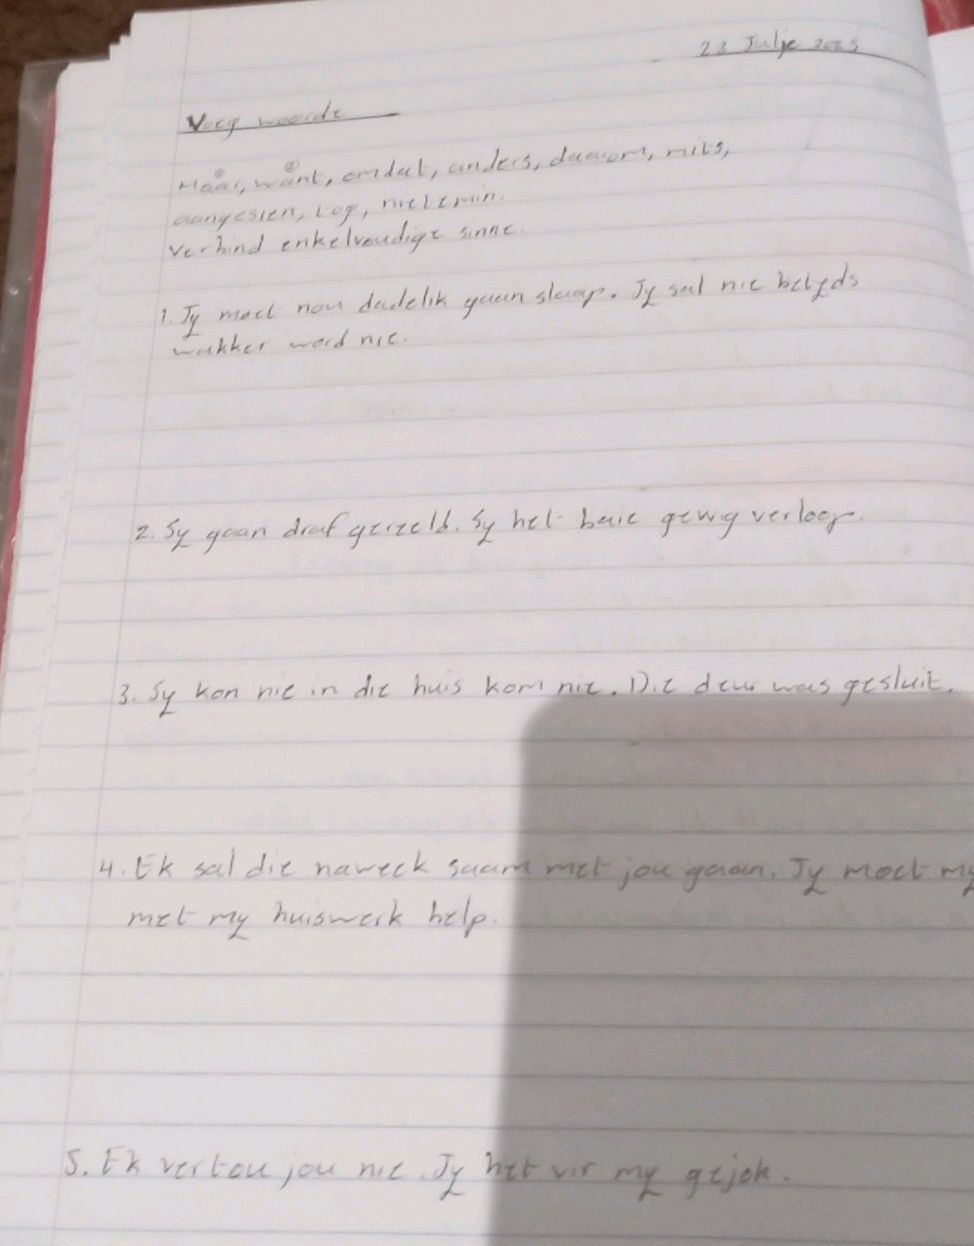 23 Julje 2025
Voeg woorde
Maar, want, omdat, anders, daarom, mits,
aangesien, tog, nietemin.
Verbind enkelvoudige sinne.
1. Jy moet nou dadelik gaan slaap. Jy sal nie betyds
wakker word nie.
2. Sy gaan draf gereeld. Sy het baie gewig verloor.
3. Sy kon nie in die huis kom nie. Die deur was gesluit.
4. Ek sal die naweek saam met jou gaan. Jy moet my
met my huiswerk help.
5. Ek vertou jou nie. Jy het vir my gejok.